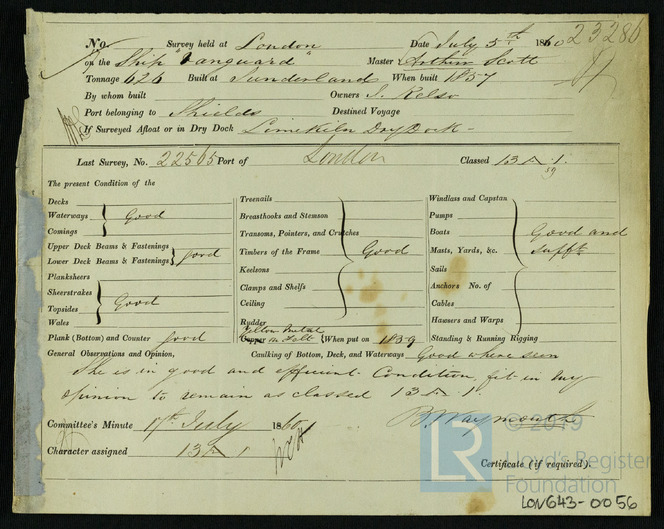 No. Survey held at London Date July 5th 1860 23286
on the Ship "Vanguard" Master Arthur Scott
Tonnage 626 Built at Sunderland When built 1857
By whom built Owners J. Kelso
Port belonging to Shields Destined Voyage
If Surveyed Afloat or in Dry Dock Limekiln Dry Dock -
Last Survey, No. 22565 Port of London Classed 13 A 1.
59
The present Condition of the
Decks
Waterways
Comings
Good
Upper Deck Beams & Fastenings
Lower Deck Beams & Fastenings
good
Planksheers
Sheerstrakes
Topsides
Wales
Good
Plank (Bottom) and Counter good
Treenails
Breasthooks and Stemson
Transoms, Pointers, and Crutches
Timbers of the Frame
Keelsons
Clamps and Shelfs
Ceiling
Rudder
Good
Yellow Metal
Copper on Felt (When put on 1859
Windlass and Capstan
Pumps
Boats
Masts, Yards, &c.
Sails
Anchors No. of
Cables
Hawsers and Warps
Standing & Running Rigging
Good and
Sufft
General Observations and Opinion, Caulking of Bottom, Deck, and Waterways Good where seen
She is in good and efficient Condition, fit in my
opinion to remain as classed 13 A 1.
B. Waymouth
Committee's Minute 17th July 1860
Character assigned 13 A 1
Certificate (if required).
© 2019
LR
Lloyd's Register
Foundation
LON643-0056